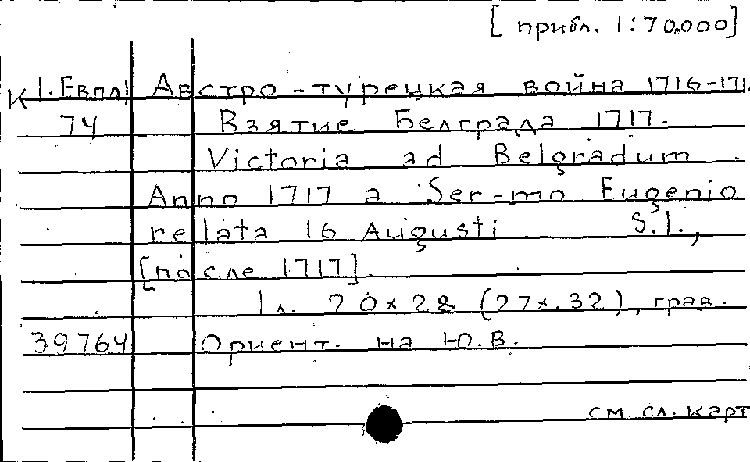 [прибл. 1:70.000]
К 1.Евпл Австро-турецкая война 1716-171
74 Взятие Белграда 1717.
Victoria ad Belgradum
Anno 1717 a Ser-mo Eugenio
relata 16 Augusti S.l.,
[после 1717].
1 л. 20×28 (27×32), грав.
39764 Ориент. на Ю.В.
см сл. карт